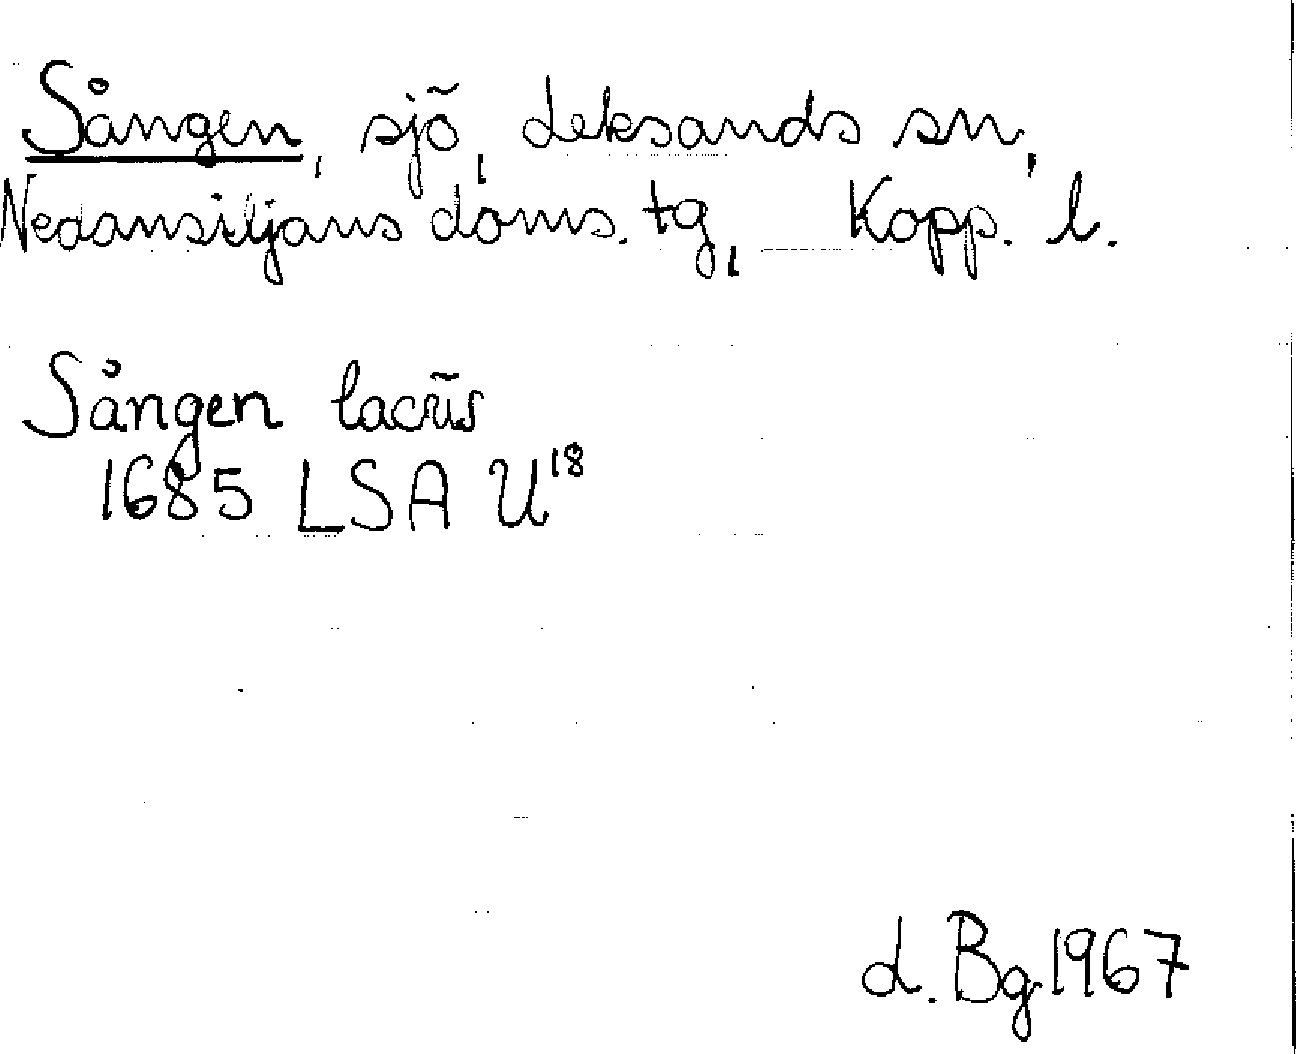 Sången, sjö, Leksands sn,
Nedansiljans doms. tg, Kopp. l.
Sången lacus
1685 LSA U18
L. Bg 1967